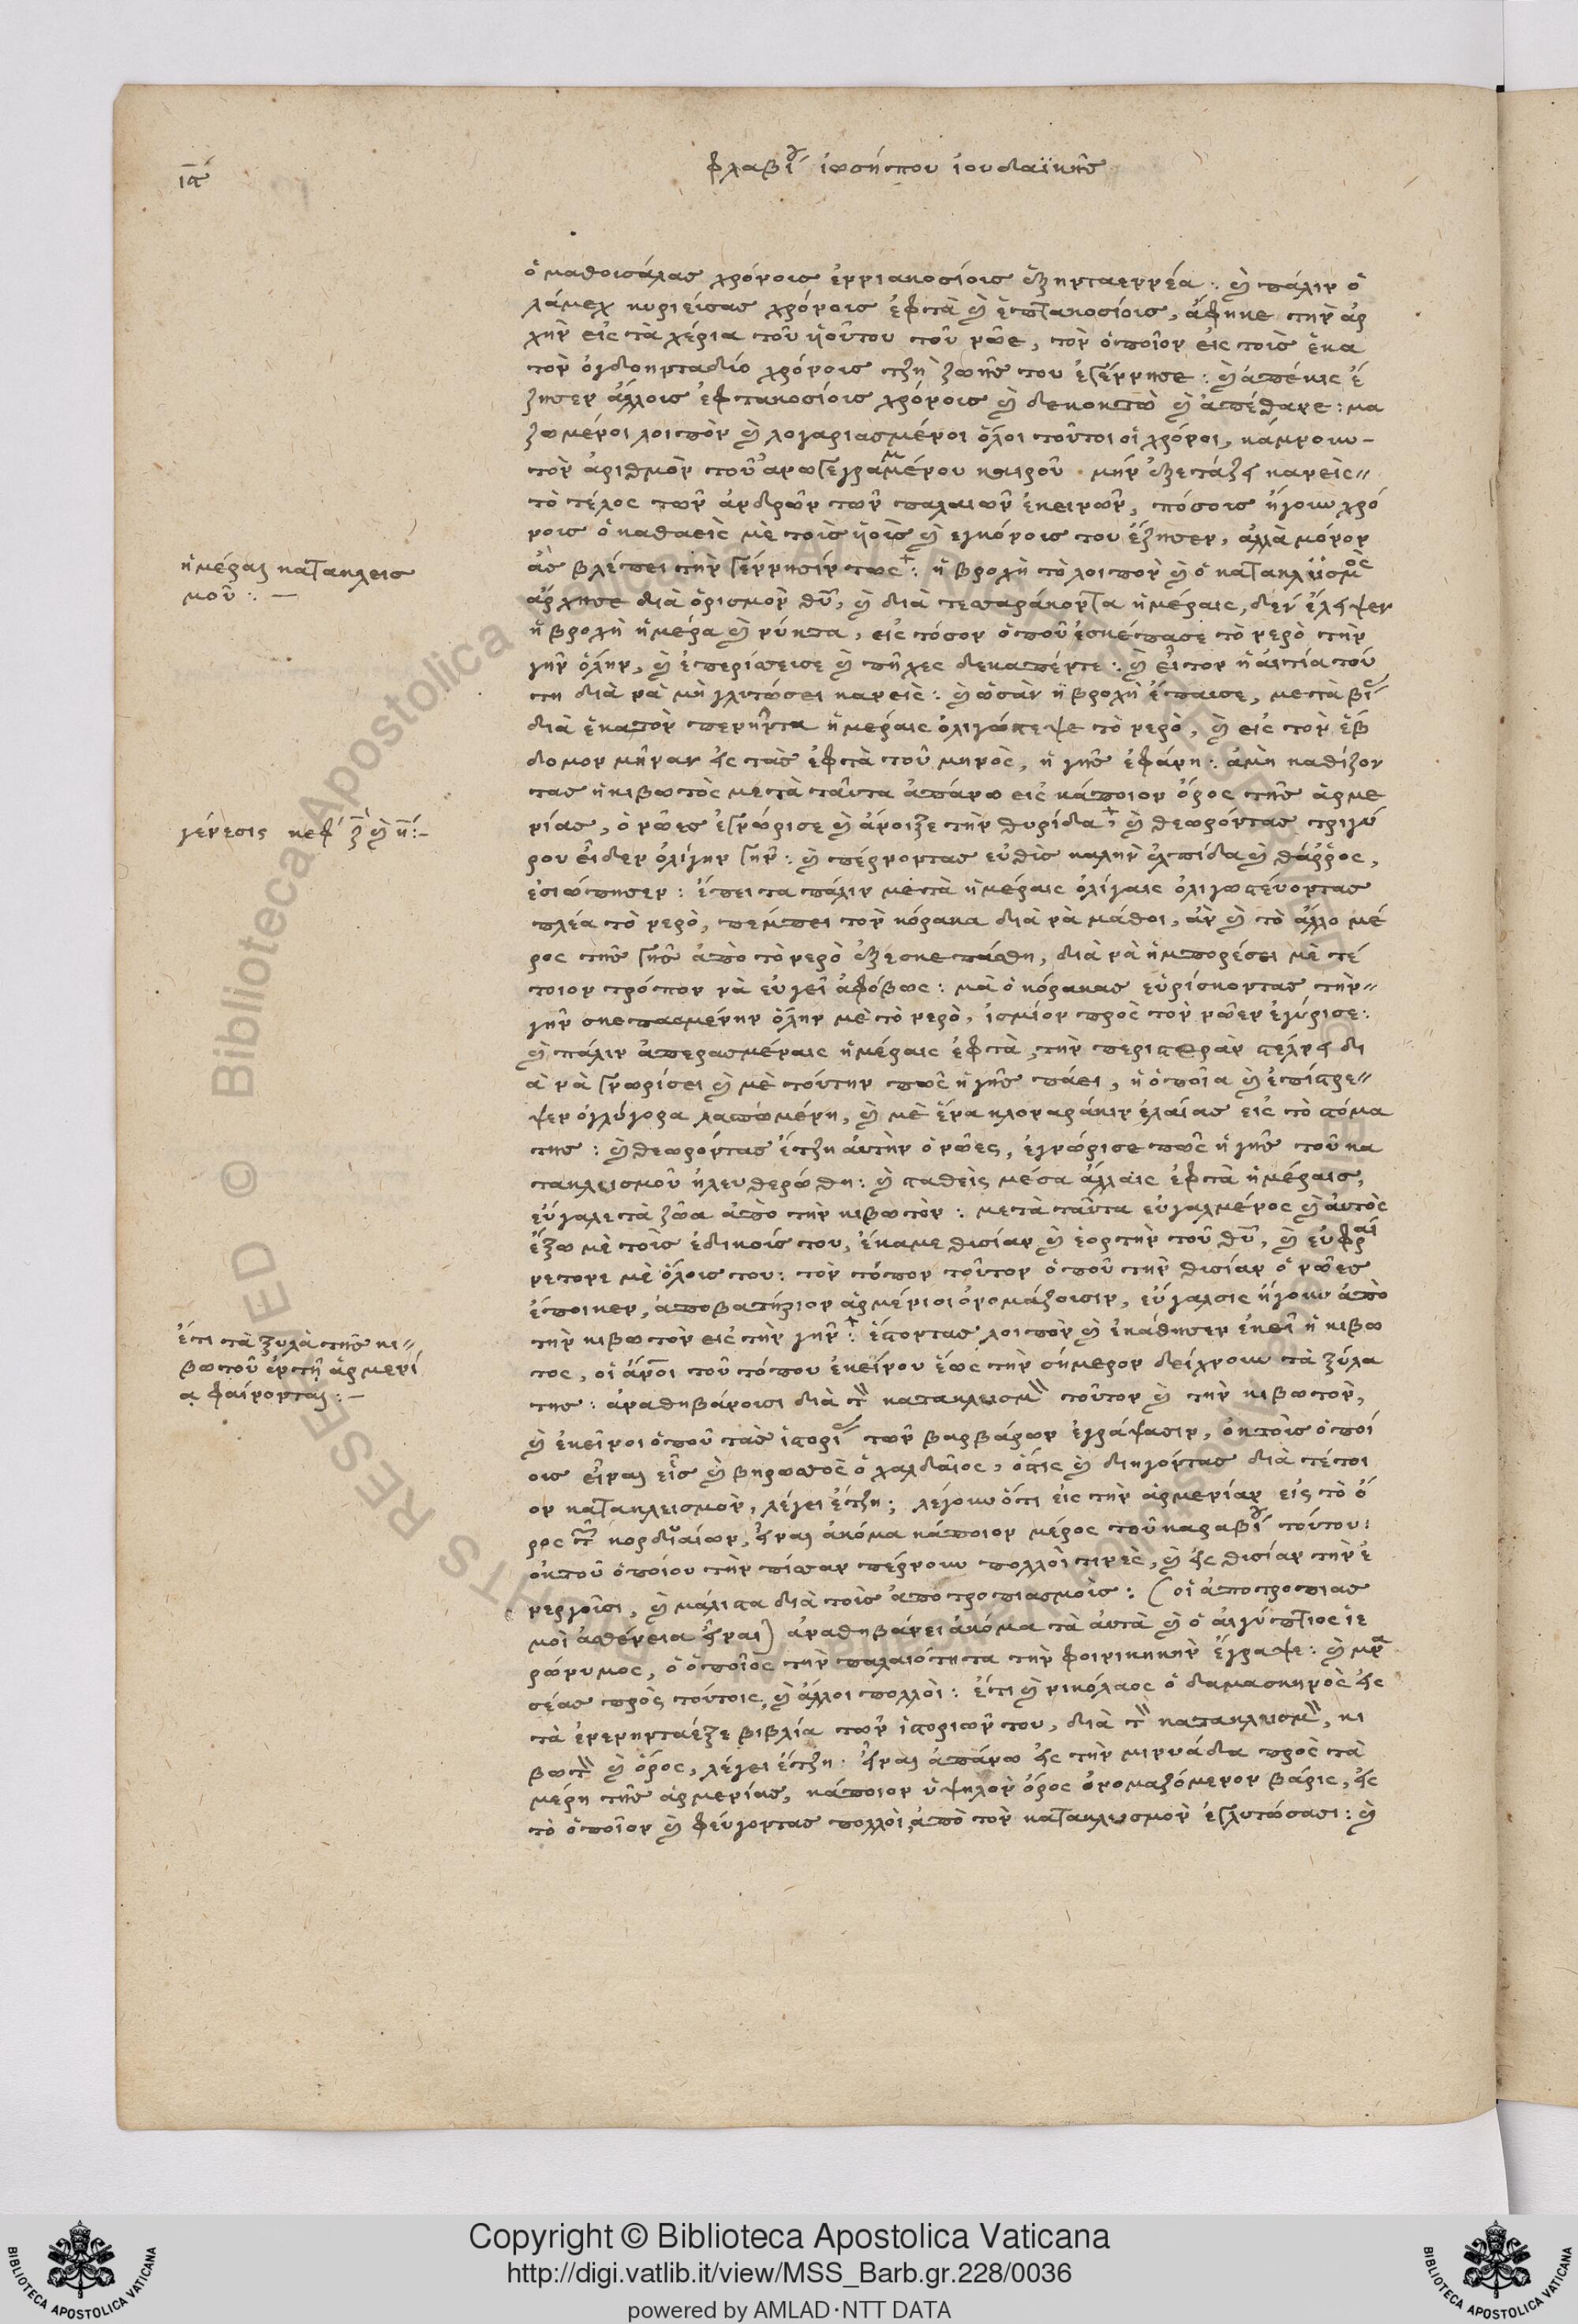 ιϛ
φλαβίου ἰωσήπου ἰουδαϊκῆς
ὁ μαθουσάλας χρόνοις ἐννιακοσίοις ἑξηνταεννέα: καὶ πάλιν ὁ
λάμεχ κυριεύσας χρόνοις ἑφτὰ καὶ ἑπτακοσίοις, ἄφηκε τὴν ἀρ
χὴν εἰς τὰ χέρια τοῦ ὑιοῦτου τοῦ νῶε, τὸν ὁποῖον εἰς τοὶς ἑκα
τὸν ὀγδοηνταδύο χρόνοις τζὴ ζωῆς του ἐγέννησε: καὶ ἀπέκις ἔ
ζησεν ἄλλοις ἑφτακοσίοις χρόνοις καὶ δεκοκτὼ καὶ ἀπέθανε: μα
ζωμένοι λοιπὸν καὶ λογαριασμένοι ὅλοι τοῦτοι οἱ χρόνοι, κάμνουν
τὸν ἀριθμὸν τοῦ ἄνωγεγραμμένου καιροῦ. μὴν ἐξετάζη κανεὶς
τὸ τέλος τῶν ἀνδρῶν τῶν παλαιῶν ἐκεινῶν, πόσοις ἤγουν χρό
νοις ὁ καθαεὶς μὲ τοὶς ὑιοὶς καὶ ἐγκόνοις του ἔζησεν, ἀλλὰ μόνον
ἂς βλέπει τὴν γέννησίν τως: ἡ βροχὴ τὸ λοιπὸν καὶ ὁ κατακλυσμὸς
ἄρχησε διὰ ὁρισμὸν θυ, καὶ διὰ τεσσαράκοντα ἡμέραις, δὲν ἔλειψεν
ἡ βροχὴ ἡμέρα καὶ νύκτα, εἰς τόσον ὁποῦ ἐσκέπασε τὸ νερὸ τὴν
γῆν ὅλην, καὶ ἐπερίσσεισε καὶ πῆχες δεκαπέντε: καὶ εἶτον ἡ αἰτία τού
τη διὰ νὰ μὴ γλυτώσει κανεὶς: καὶ ὡσὰν ἡ βροχὴ ἔπαυσε, μετὰ βίου
διὰ ἑκατὸν πενῆντα ἡμέραις ὀλιγώτεψε τὸ νερὸ, καὶ εἰς τὸν ἕβ
δομον μῆναν εἰς τὰς ἑφτὰ τοῦ μηνὸς, ἡ γῆς ἐφάνη: ἀμὴ καθίζον
τας ἡ κιβωτὸς μετὰ ταῦτα ἀπάνω εἰς κάποιον ὄρος τῆς ἀρμε
νίας, ὁ νῶες ἐγνώρισε καὶ ἄνοιξε τὴν θυρίδα, καὶ θεωρόντας τριγύ
ρου εἶδεν ὀλίγην γῆν: καὶ πέρνοντας εὐθὺς καλὴν ἐλπίδα καὶ θάρρος,
ἐσιώπησεν: ἔπειτα πάλιν μετὰ ἡμέραις ὀλίγαις ὀλιγωστεύοντας
πλέα τὸ νερὸ, πέμπει τὸν κόρακα διὰ νὰ μάθοι, ἂν καὶ τὸ ἄλλο μέ
ρος τῆς γῆς ἀπὸ τὸ νερὸ ἐξεσκεπάσθη, διὰ νὰ ἡμπορέσει μὲ τέ
τοιον τρόπον νὰ εὐγεῖ ἀφόβως: μὰ ὁ κόρακας εὑρίσκοντας τὴν
γῆν σκεπασμένην ὅλην μὲ τὸ νερὸ, ἰσμίον πρὸς τὸν νῶεν ἐγύρισε:
καὶ πάλιν ἀπερασμέναις ἡμέραις ἑφτὰ, τὴν περιστερὰν στέλνει δι
ὰ νὰ γνωρίσει καὶ μὲ τούτην πῶς ἡ γῆς πάει, ἡ ὁποῖα καὶ ἐπίστρε
ψεν ὀγλύγορα λασπωμένη, καὶ μὲ ἕνα κλοναράκιν ἐλαίας εἰς τὸ στόμα
της: καὶ θεωρόντας ἔτζη ἀυτὴν ὁ νῶες, ἐγνώρισε πῶς ἡ γῆς τοῦ κα
τακλεισμοῦ ἠλευθερώθη: καὶ σταθεὶς μέσα ἄλλαις ἑφτὰ ἡμέραις,
εὔγαλε τὰ ζῶα ἀπὸ τὴν κιβωτόν: μετὰ ταῦτα εὐγαλμένος καὶ ἀυτὸς
ἔξω μὲ τοὶς ἐδικοίς του, ἔκαμε θισίαν καὶ ἑορτὴν τοῦ θυ, καὶ εὐφραί
νετονε μὲ ὅλοις του: τὸν τόπον τοῦτον ὁποῦ τὴν θισίαν ὁ νῶες
ἔποικεν, ἀποβατήριον ἀρμένιοι ὀνομάζουσιν, εὔγαλσις ἤγουν ἀπὸ
τὴν κιβωτὸν εἰς τὴν γῆν: ἔστοντας λοιπὸν καὶ ἐκάθησεν ἐκεῖ ἡ κιβω
τος, οἱ ἄνοι τοῦ τόπου ἐκείνου ἕως τὴν σήμερον δείχνουν τὰ ξύλα
της: ἀναθηβάνουσι διὰ τὸν κατακλυσμὸν τοῦτον καὶ τὴν κιβωτὸν,
καὶ ἐκεῖνοι ὁποῦ τὰς ἱστορίας τῶν βαρβάρων ἐγράψασιν, ἐκ τοὶς ὁποί
οις εἶναι εἷς καὶ βηρωσσὸς ὁ χαλδαῖος, ὅστις καὶ διηγόντας διὰ τέτοι
ον κατακλεισμὸν, λέγει ἔτζη; λέγουν ὅτι εἰς τὴν ἀρμενίαν εἰς τὸ ὄ
ρος τῶν κορδιαίων, εἶναι ἀκόμα κάποιον μέρος τοῦ καραβίου τούτου:
ἐκ τοῦ ὁποίου τὴν πίσσαν πέρνουν πολλοὶ τινὲς, καὶ εἰς θισίαν τὴν ἐ
νεργοῦσι, καὶ μάλιστα διὰ τοὶς ἀποτροπιασμοὶς: (οἱ ἀποτροπιασ
μοὶ ἀσθένεια εἶναι) ἀναθηβάνει ἀκόμα τὰ ἀυτὰ καὶ ὁ αἰγύπτιος ἱε
ρώνυμος, ὁ ὁποῖος τὴν παλαιότητα τὴν φοινικικὴν ἔγραψε: καὶ μνα
σέας πρὸς τούτοις, καὶ ἄλλοι πολλοὶ: ἔτι καὶ νικόλαος ὁ δαμασκηνὸς εἰς
τὰ ἐνενηνταέξε βιβλία τῶν ἱστοριῶν του, διὰ τὸν κατακλυσμὸν, κι
βωτὸν καὶ ὄρος, λέγει ἔτζη: εἶναι ἀπάνω εἰς τὴν μινυάδα πρὸς τὰ
μέρη τῆς ἀρμενίας, κάποιον ὑψηλὸν ὄρος ὀνομαζόμενον βάρις, εἰς
τὸ ὁποῖον καὶ φεύγοντας πολλοὶ ἀπὸ τὸν κατακλυσμὸν ἐγλυτώσασι: καὶ
ἡμέραι κατακλεισ
μοῦ: -
γένεσις κεφ ζ καὶ η: -
ἔτι τὰ ξυλὰ τῆς κι
βωτοῦ ἐν τῆ ἀρμενί
α φαίνονται: -
Copyright © Biblioteca Apostolica Vaticana
http://digi.vatlib.it/view/MSS_Barb.gr.228/0036
powered by AMLAD·NTT DATA